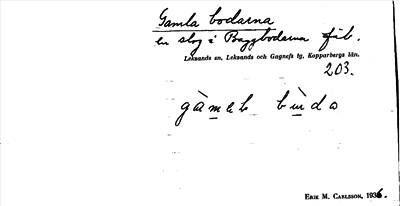 Gamla bodarna
en slog i Baggbodarna fäb.
Leksands sn, Leksands och Gagnefs tg, Kopparbergs län.
203.
gàmal bùda
ERIK M. CARLSSON, 1936.